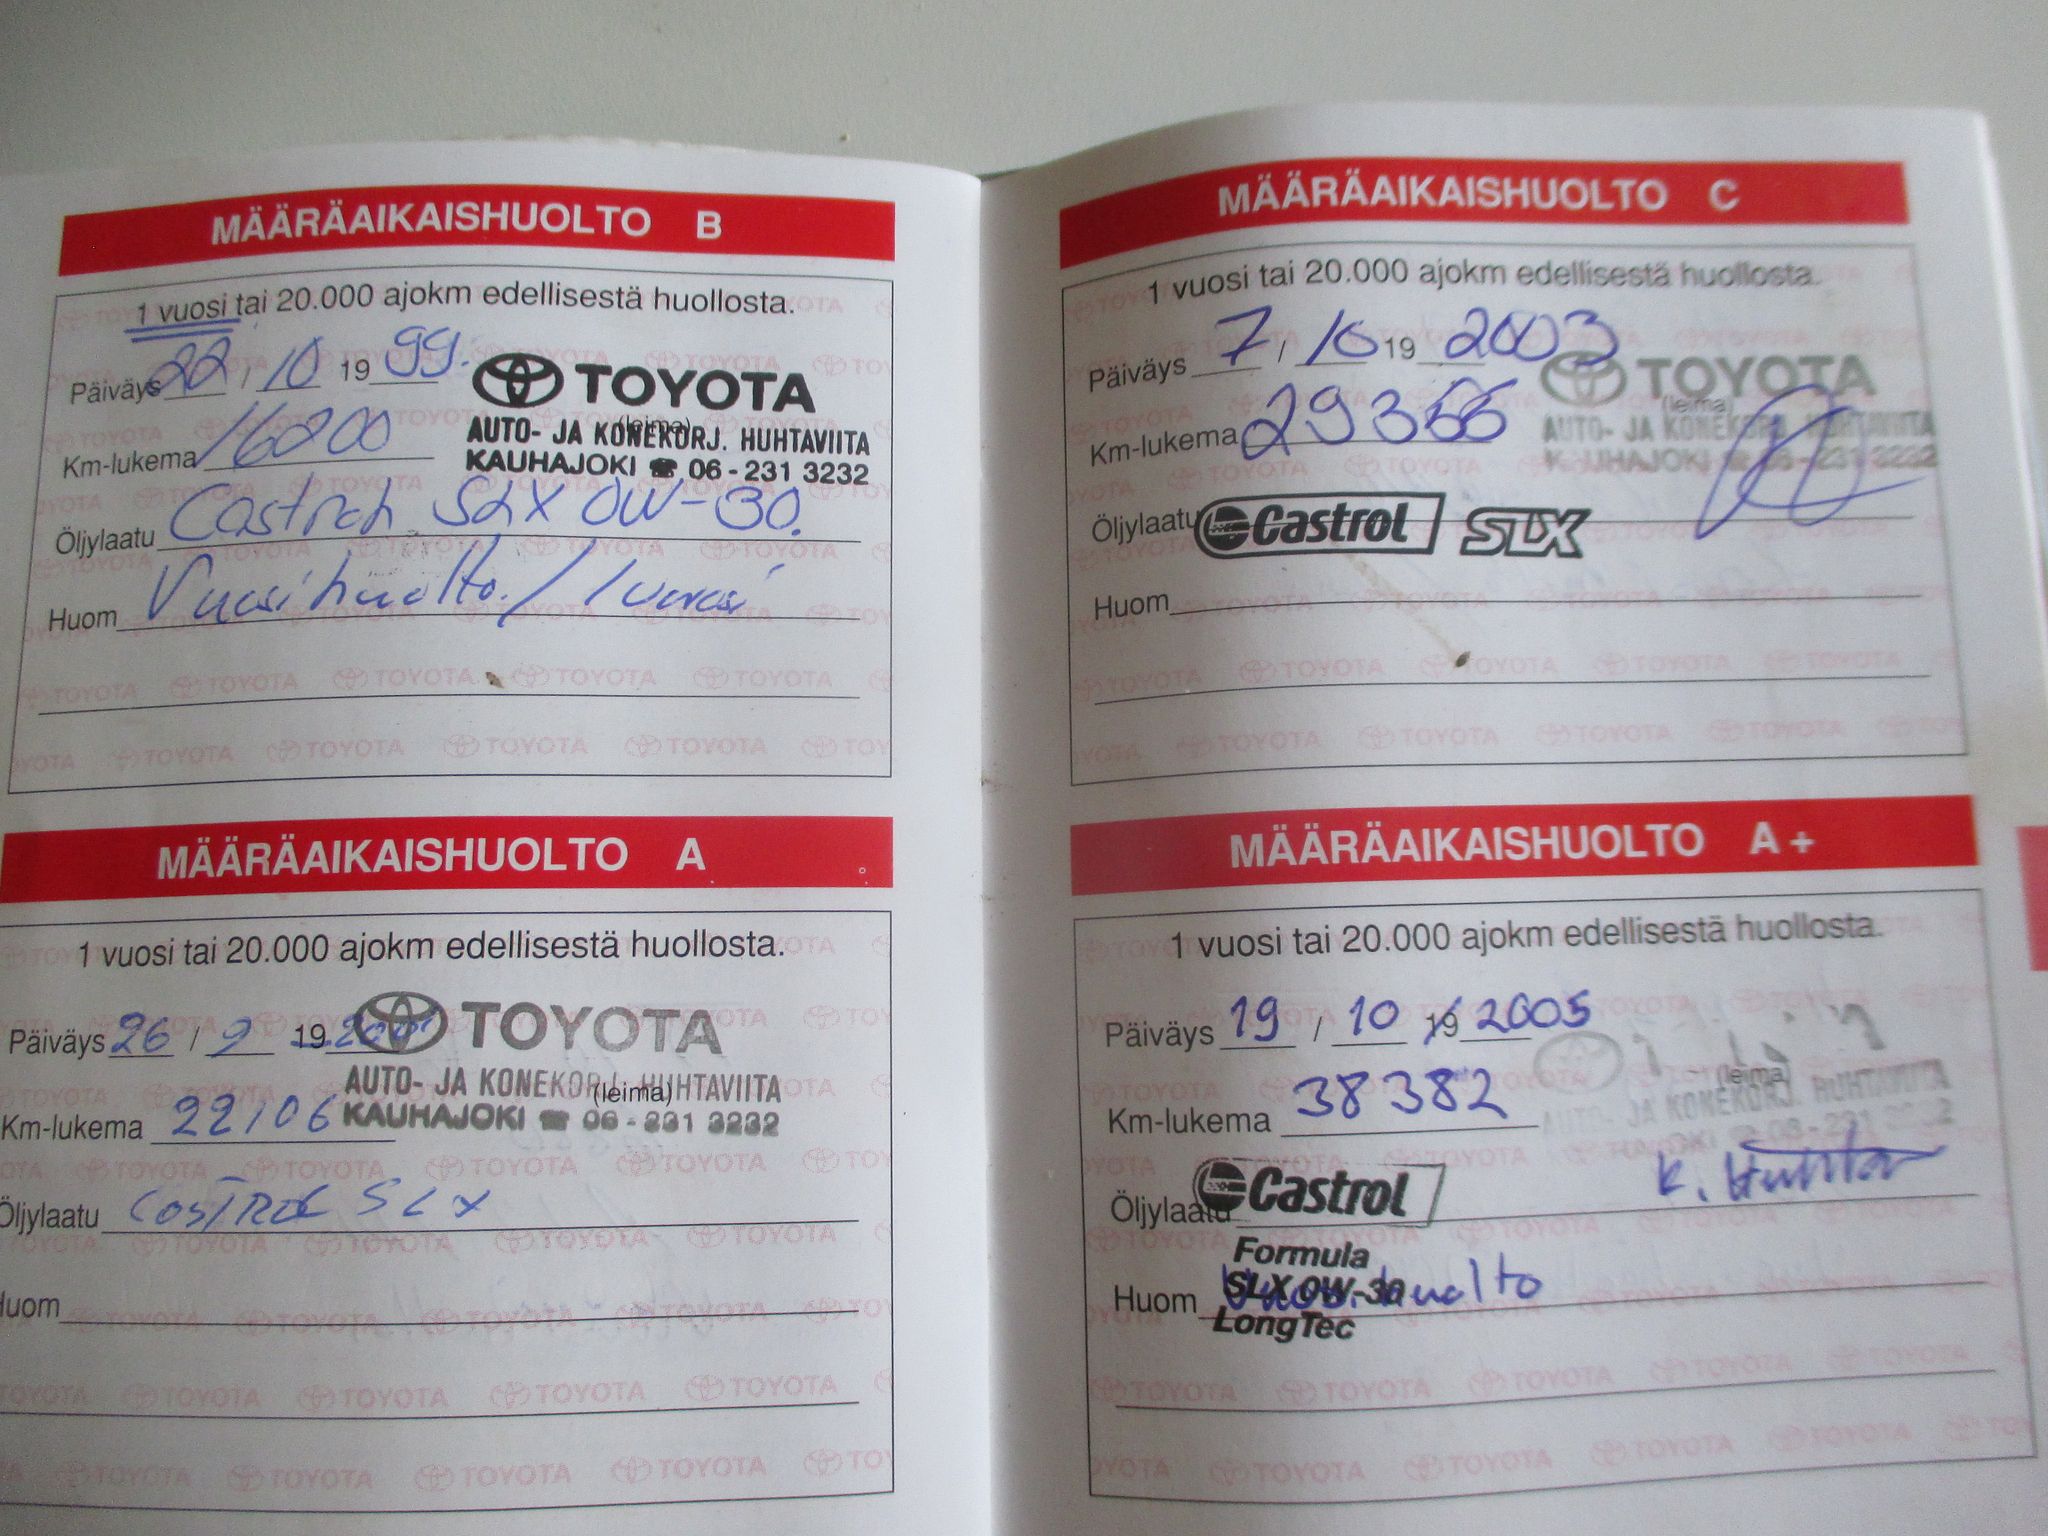 MÄÄRÄAIKAISHUOLTO B
1 vuosi tai 20.000 ajokm edellisestä huollosta.
Päiväys 22 / 10 19 99.
TOYOTA
(leima)
AUTO- JA KONEKORJ. HUHTAVIITA
KAUHAJOKI ☎ 06 - 231 3232
Km-lukema 16200
Öljylaatu Castrol SLX 0W-30.
Huom Vuosihuolto. / 1 vuosi
MÄÄRÄAIKAISHUOLTO A
1 vuosi tai 20.000 ajokm edellisestä huollosta.
Päiväys 26 / 9 19
TOYOTA
AUTO- JA KONEKORJ. HUHTAVIITA
(leima)
KAUHAJOKI ☎ 06 - 231 3232
Km-lukema 22106
Öljylaatu CASTROL SLX
Huom
MÄÄRÄAIKAISHUOLTO C
1 vuosi tai 20.000 ajokm edellisestä huollosta.
Päiväys 7 / 10 19 2003
TOYOTA
(leima)
AUTO- JA KONEKORJ. HUHTAVIITA
KAUHAJOKI ☎ 06 - 231 3232
Km-lukema 29366
Öljylaatu Castrol SLX
Huom
MÄÄRÄAIKAISHUOLTO A +
1 vuosi tai 20.000 ajokm edellisestä huollosta.
Päiväys 19 / 10 19 2005
(leima)
AUTO- JA KONEKORJ. HUHTAVIITA
Km-lukema 38382
Öljylaatu Castrol
Formula
SLX 0W-30
LongTec
Huom Vuosihuolto